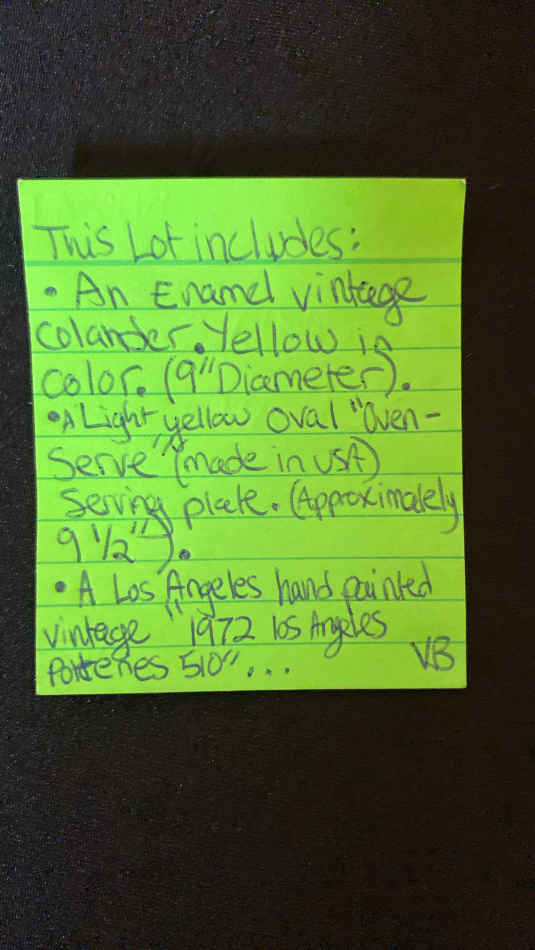 This Lot includes:
• An Enamel vintage
Colander. Yellow in
color. (9" Diameter).
• A Light yellow oval "Oven-
Serve" (made in USA)
Serving plate. (Approximately
9 1/2").
• A Los Angeles hand painted
vintage "1972 los Angeles
Potteries 510"...
VB